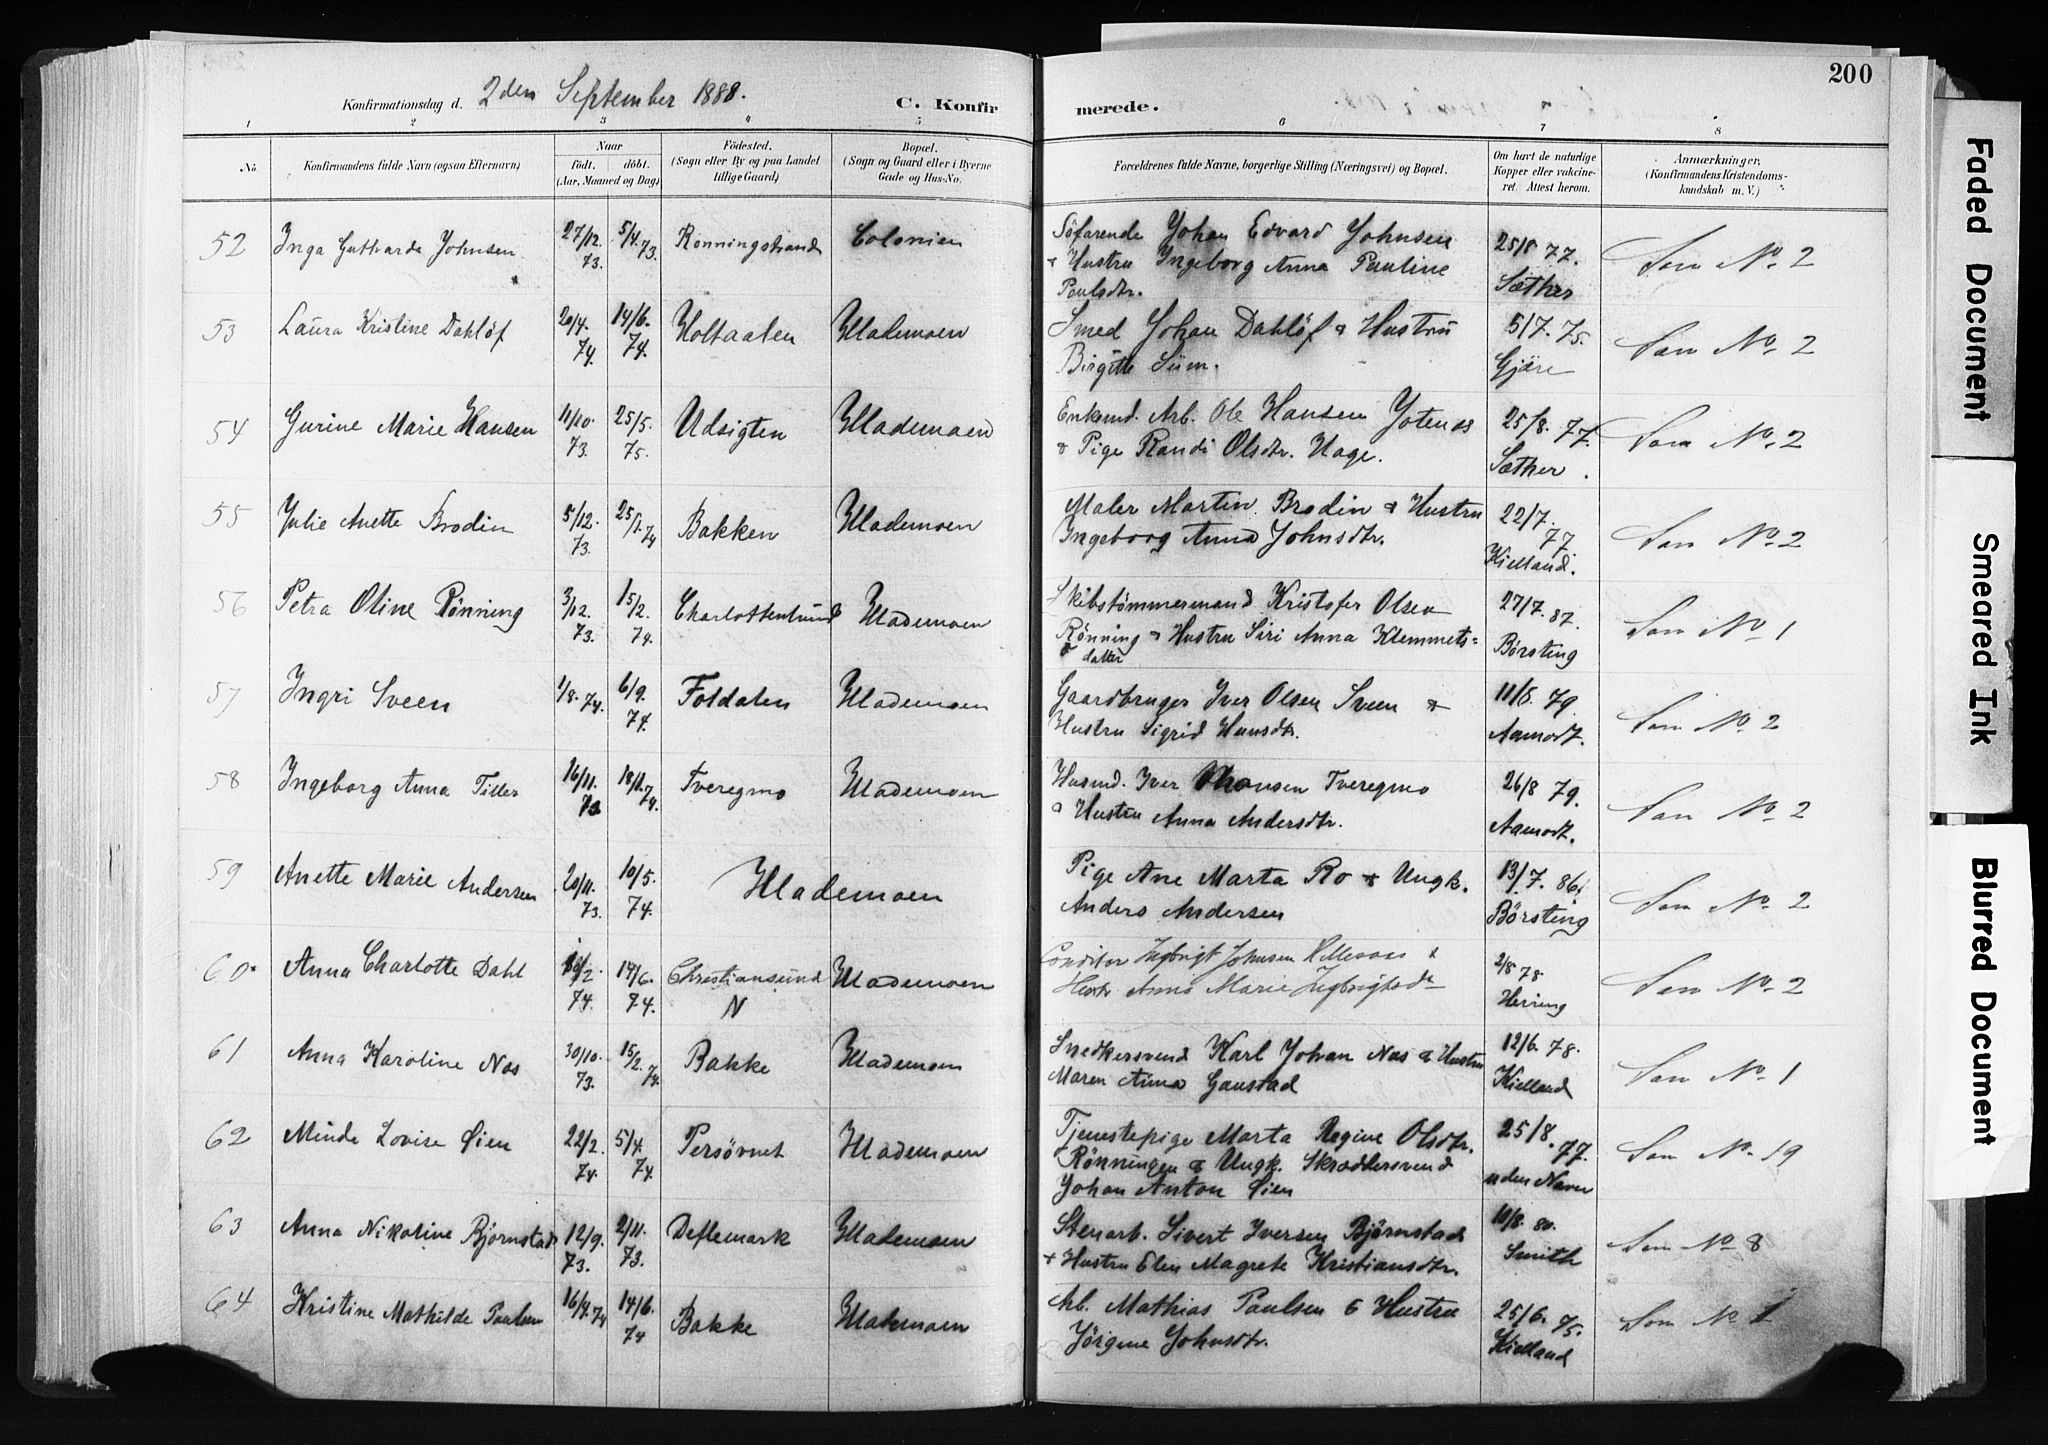 200
Konfirmationsdag d. 2den September 1888. C. Konfirmerede.
1 2 3 4 5 6 7 8
No
Konfirmandens fulde Navn (ogsaa Efternavn)
Naar
født. døbt.
(Aar, Maaned og Dag)
Fødested.
(Sogn eller By og paa Landet
tillige Gaard)
Bopæl.
(Sogn og Gaard eller i Byerne
Gade og Hus-No.
Forældrenes fulde Navne, borgerlige Stilling (Næringsvei) og Bopæl.
Om havt de naturlige
Kopper eller vakcine-
ret. Attest herom.
Anmærkninger.
(Konfirmandens Kristendoms-
kundskab m. V.)
52 Inga Gutharda Johnsen 27/12. 73. 5/4. 73. Rönningstrand Colonien
Söfarende Johan Edvard Johnsen
& Hustru Ingeborg Anna Pauline
Paulsdtr.
25/8 77.
Sæther
Som No. 2
53 Laura Kristine Dahlöf 20/4. 74. 14/6. 74. Holtaalen Hlademoen
Smed Johan Dahlöf & Hustru
Birgitte Siim.
5/7. 75.
Gjöre
Som No. 2
54 Gurine Marie Hansen 11/10. 73. 25/5. 75. Udsigten Hlademoen
Enkemd. Arb. Ole Hansen Jotenes
& Pige Randi Olsdtr. Hage.
25/8. 77.
Sæther.
Som No. 2
55 Julie Anette Brodin 5/12. 73. 25/1. 74 Bakken Hlademoen
Maler Martin Brodin & Hustru
Ingeborg Anna Johnsdtr.
22/7. 77.
Kielland.
Som No. 2
56 Petra Oline Rönning 3/12. 73. 15/2. 74. Charlottenlund Hlademoen
Skibstömmermand Kristofer Olsen
Rönning & Hustru Siri Anna Klemmets=
datter
27/7. 87.
Börsting
Som No. 1
57 Ingri Sveen 1/8. 74. 6/9. 74. Foldalen Hlademoen
Gaardbruger Iver Olsen Sveen &
Hustru Sigrid Hansdtr.
11/8. 79.
Aamodt.
Som No. 2
58 Ingeborg Anna Tiller 16/11. 73 18/1. 74. Tveregmo Hlademoen
Husmd. Iver Tveregmo
& Hustru Anna Andersdtr.
26/8 79.
Aamodt.
Som No. 2
59 Anette Marie Andersen 20/11. 73. 10/5. 74. Hlademoen
Pige Ane Marta Ro & Ungk.
Anders Andersen
13/7. 86.
Börsting
Som No. 2
60. Anna Charlotte Dahl /2. 74. 14/6. 74. Christiansund N Hlademoen
Conditor Ingbrigt Johnsen &
Hustr. Anne Marie Ingbrigtsdr
2/8 78
Herring
Som No. 2
61 Anna Karoline Nos 30/10. 73. 15/2. 74. Bakke Hlademoen
Snedkersvend Karl Johan Nos & Hustru
Maren Anna Gaustad
12/6. 78.
Kielland
Som No. 1
62 Minda Lovise Øien 22/2. 74. 5/4. 74. Persövnet Hlademoen
Tjenestepige Marta Regine Olsdtr.
Rönningen & Ungk. Skrædersvend
Johan Anton Øien
25/8. 77.
uden Navn
Som No. 19
63 Anna Nikoline Björnstad 12/9. 73. 2/11. 73. Deflemark Hlademoen
Stenarb. Sivert Iversen Björnstad
& Hustru Elen Magrete Kristiansdtr.
10/8. 80.
Smith
Som No. 8
64 Kristine Mathilde Paulsen 16/4. 74 14/6. 74 Bakke Hlademoen
Arb. Mathias Paulsen & Hustru
Jörgine Johnsdtr.
25/6. 75.
Kielland
Som No. 1
Faded Document
Smeared Ink
Blurred Document